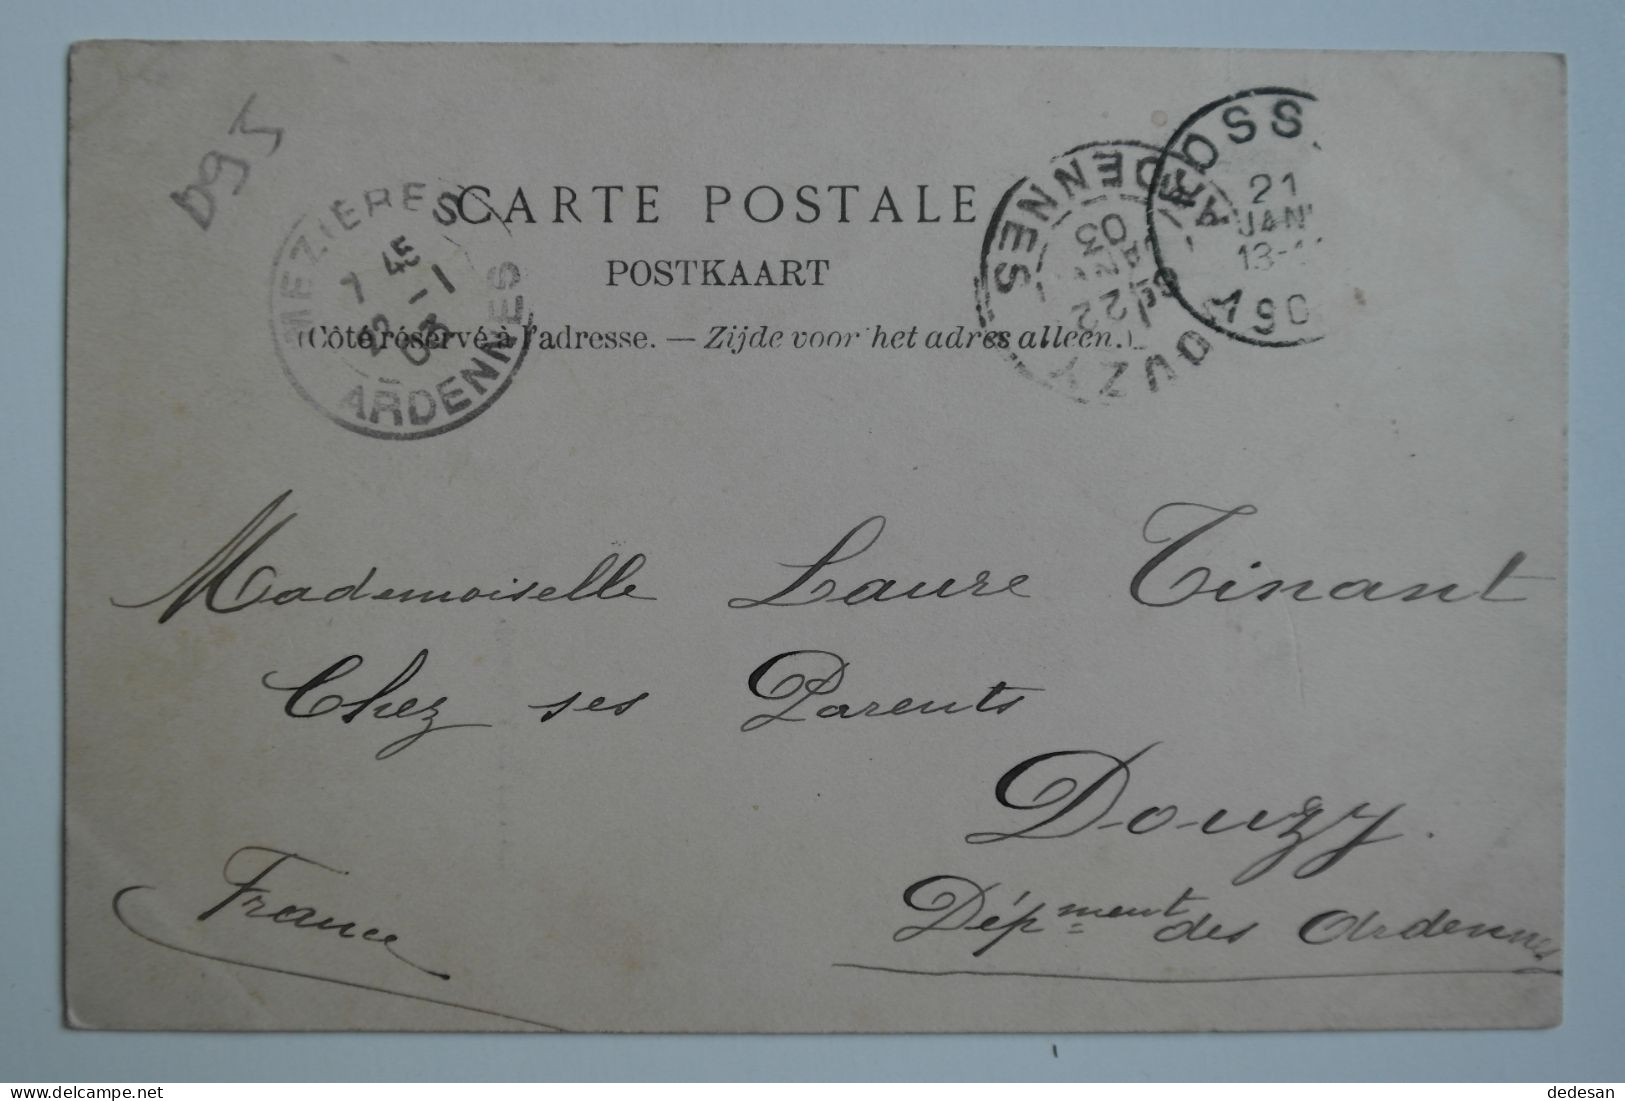 D95
CARTE POSTALE
POSTKAART
(Côté réservé à l'adresse. — Zijde voor het adres alleen.)
MEZIÈRES
7 45
22 -1
03
ARDENNES
DOUZY
ARDENNES
22
03
21
JANV
13-
190
Mademoiselle Laure Tinant
Chez ses Parents
Douzy.
Dépment des Ardennes
France
dedesan